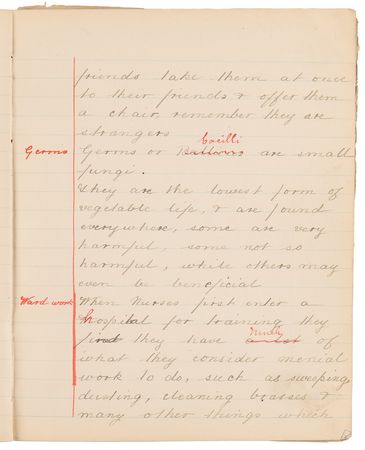 friends take them at once
to their friends & offer them
a chair, remember they are
strangers
bacilli
Germs
Germs or are small
fungi.
They are the lowest form of
vegetable life, & are found
everywhere, some are very
harmful, some not so
harmful, while others may
even be beneficial
Ward work
When Nurses first enter a
Hospital for training they
find they have of
what they consider menial
work to do, such as sweeping,
dusting, cleaning brasses &
many other things which